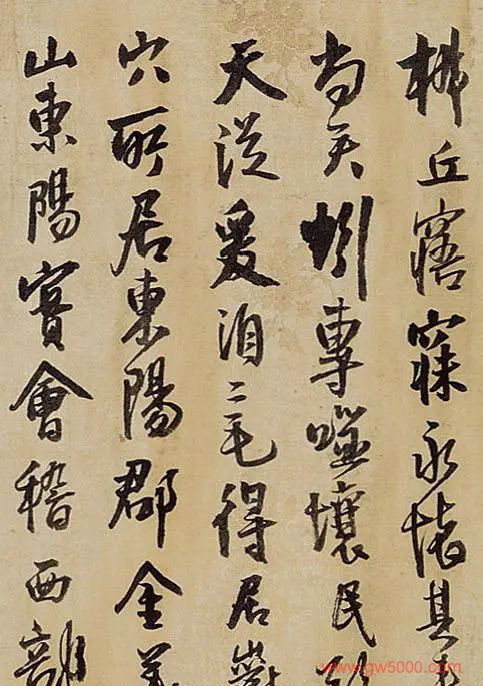 林丘寤寐永懷其
尚矣蚓專噬壤民
天從爰洎二毛得居巖
穴所居東陽郡金華
山東陽實會稽西部
www.gw5000.com